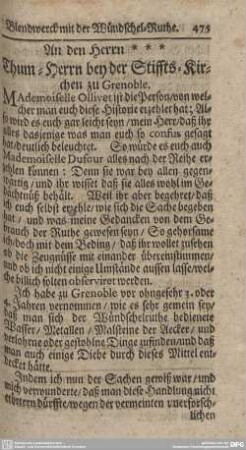 Blendwerck mit der Wündschel-Ruthe. 475
An den Herrn * * *
Thum-Herrn bey der Stiffts-Kir-
chen zu Grenoble.
MAdemoiselle Ollivet ist die Person/von wel-
cher man euch diese Historie erzehlet hat; Al-
so wird es euch gar leicht seyn/mein Herr/daß ihr
alles dasjenige was man euch so confus gesagt
hat/deutlich beleuchtet. So würde es euch auch
Mademoiselle Dufour alles nach der Reihe er-
zehlen können: Denn sie war bey allen gegen-
wärtig/und ihr wisset daß sie alles wohl im Ge-
dächtnüß behält. Weil ihr aber begehret/daß
ich euch selbst erzehle/wie sich die Sache begeben
hat/und was meine Gedancken von dem Ge-
brauch der Ruthe gewesen seyn/So gehorsame
ich/doch mit dem Beding/daß ihr wollet zusehen
ob die Zeugnüsse mit einander übereinstimmen/
und ob ich nicht einige Umstände aussen lasse/wel-
che billich solten observiret werden.
Ich habe zu Grenoble vor ohngefehr 3. oder
4. Jahren vernommen/wie es sehr gemein sey/
daß man sich der Wündschelruthe bediente
Wasser/Metallen/Malsteine der Aecker/und
verlohrne oder gestohlne Dinge zufinden/und daß
man auch einige Diebe durch dieses Mittel ent-
decket hätte.
Indem ich nun der Sachen gewiß war/und
mich verwunderte/daß man diese Handlung nicht
erinnern dürffte/wegen der vermeinten unerforsch-
lichen